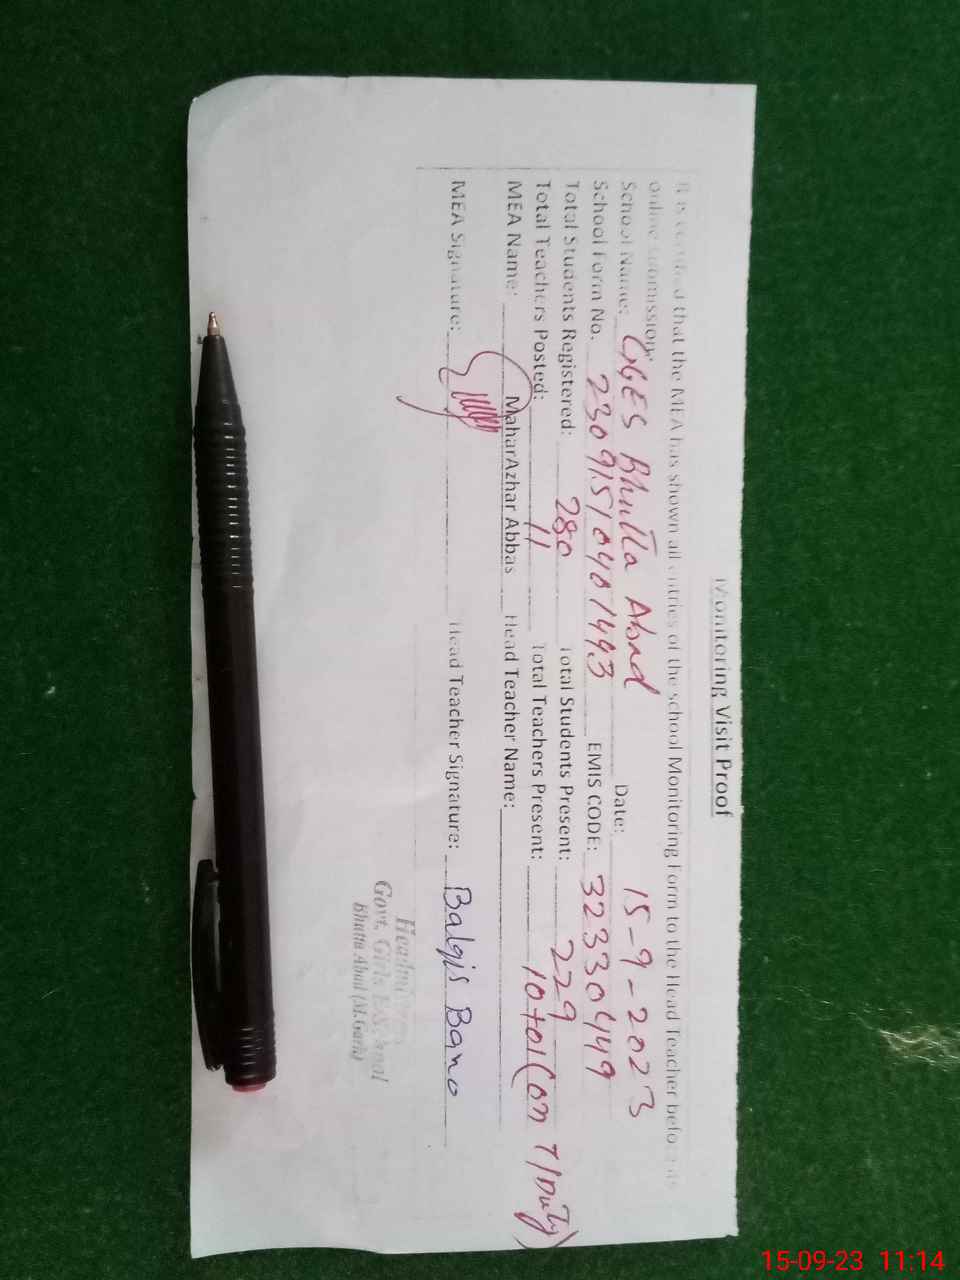 Monitoring Visit Proof
It is certified that the MEA has shown all entries of the school Monitoring Form to the Head Teacher before its
online submission.
School Name: GGES Bhutta Abad Date: 15-9-2023
School Form No. 23091510401493 EMIS CODE: 32330449
Total Students Registered: 280 Total Students Present: 229
Total Teachers Posted: 11 Total Teachers Present: 10+01(on T/Duty)
MEA Name: MaharAzhar Abbas Head Teacher Name:
MEA Signature: Head Teacher Signature: Balqis Bano
Govt. Girls E/School
Bhutta Abad (M.Garh)
15-09-23 11:14